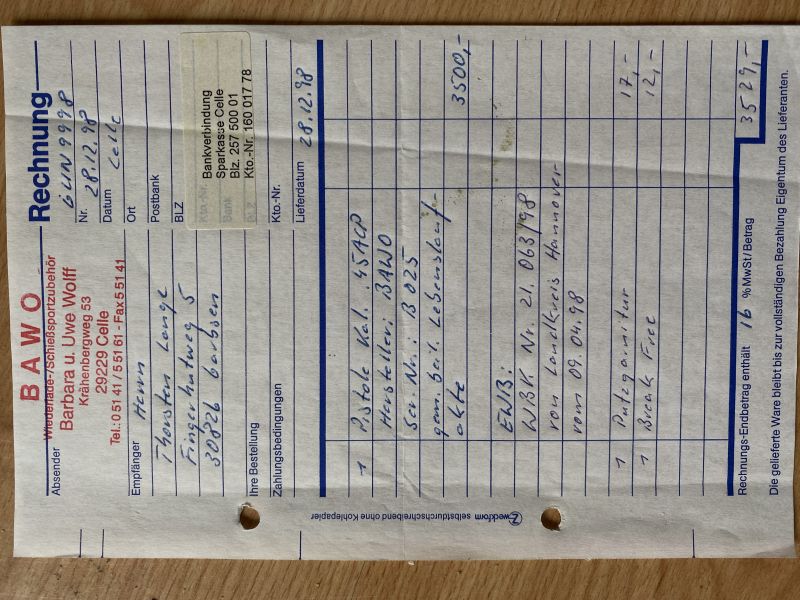 BAWO
Wiederlade-/Schießsportzubehör
Barbara u. Uwe Wolff
Krähenbergweg 53
29229 Celle
Tel.: 0 51 41 / 5 51 61 - Fax 5 51 41
Absender
Rechnung
GUN9998
Nr.
28.12.98
Datum
Celle
Ort
Postbank
BLZ
Kto.-Nr.
Bank
BLZ
Bankverbindung
Sparkasse Celle
Blz. 257 500 01
Kto.-Nr. 160 017 78
Kto.-Nr.
Lieferdatum 28.12.98
Empfänger Herrn
Thorsten Lange
Fingerhutweg 5
30826 Garbsen
Ihre Bestellung
Zahlungsbedingungen
1 Pistole Kal. .45ACP
Hersteller: BAWO
Ser. Nr.: B 025
gem. beil. Lebenslauf-
akte 3500,-
EWB:
WBK Nr. 21.063/98
von Landkreis Hannover
vom 09.04.98
1 Putzgarnitur 17,-
1 Break Free 12,-
Rechnungs-Endbetrag enthält 16 % MwSt/Betrag 3529,-
Die gelieferte Ware bleibt bis zur vollständigen Bezahlung Eigentum des Lieferanten.
Zweckform selbstdurchschreibend ohne Kohlepapier